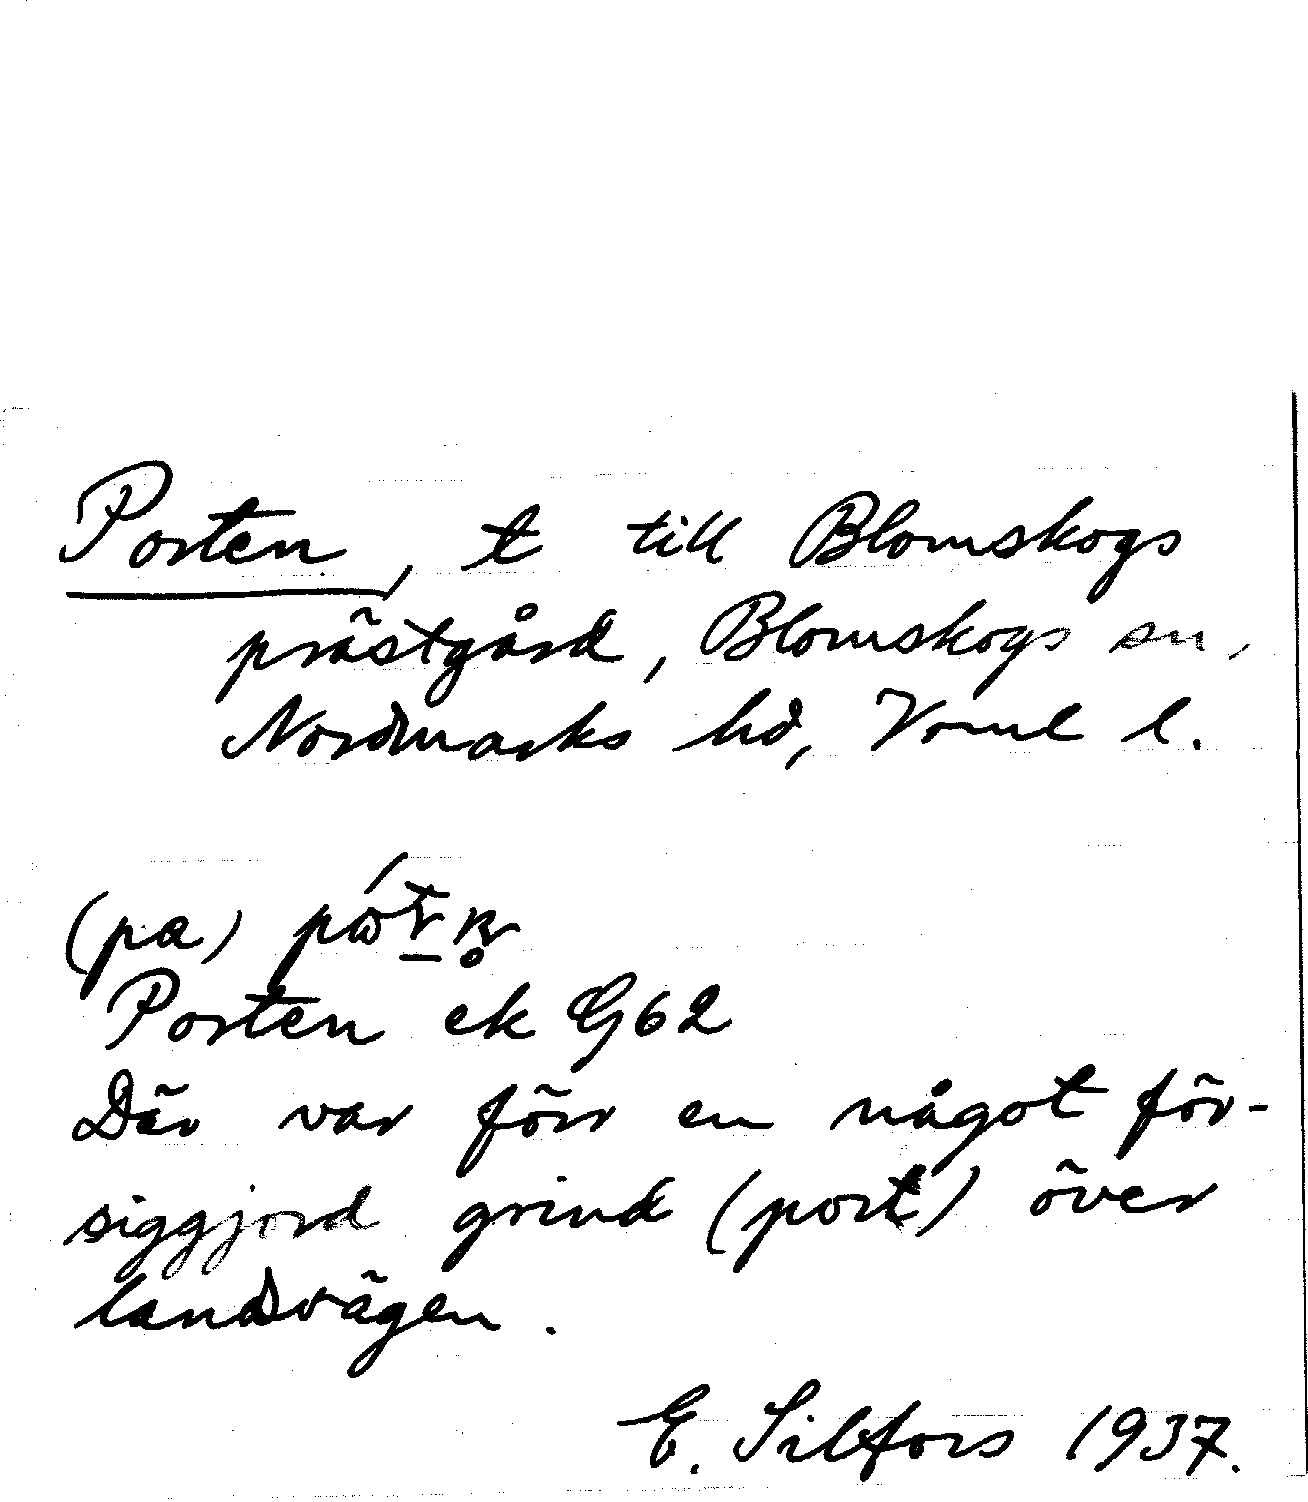 Porten, t till Blomskogs
prästgård, Blomskogs sn,
Nordmarks hd, Verml l.
(pa)
Porten ek G62
Där var förr en något för-
siggjord grind (port) över
landsvägen.
E. Silfors 1937.